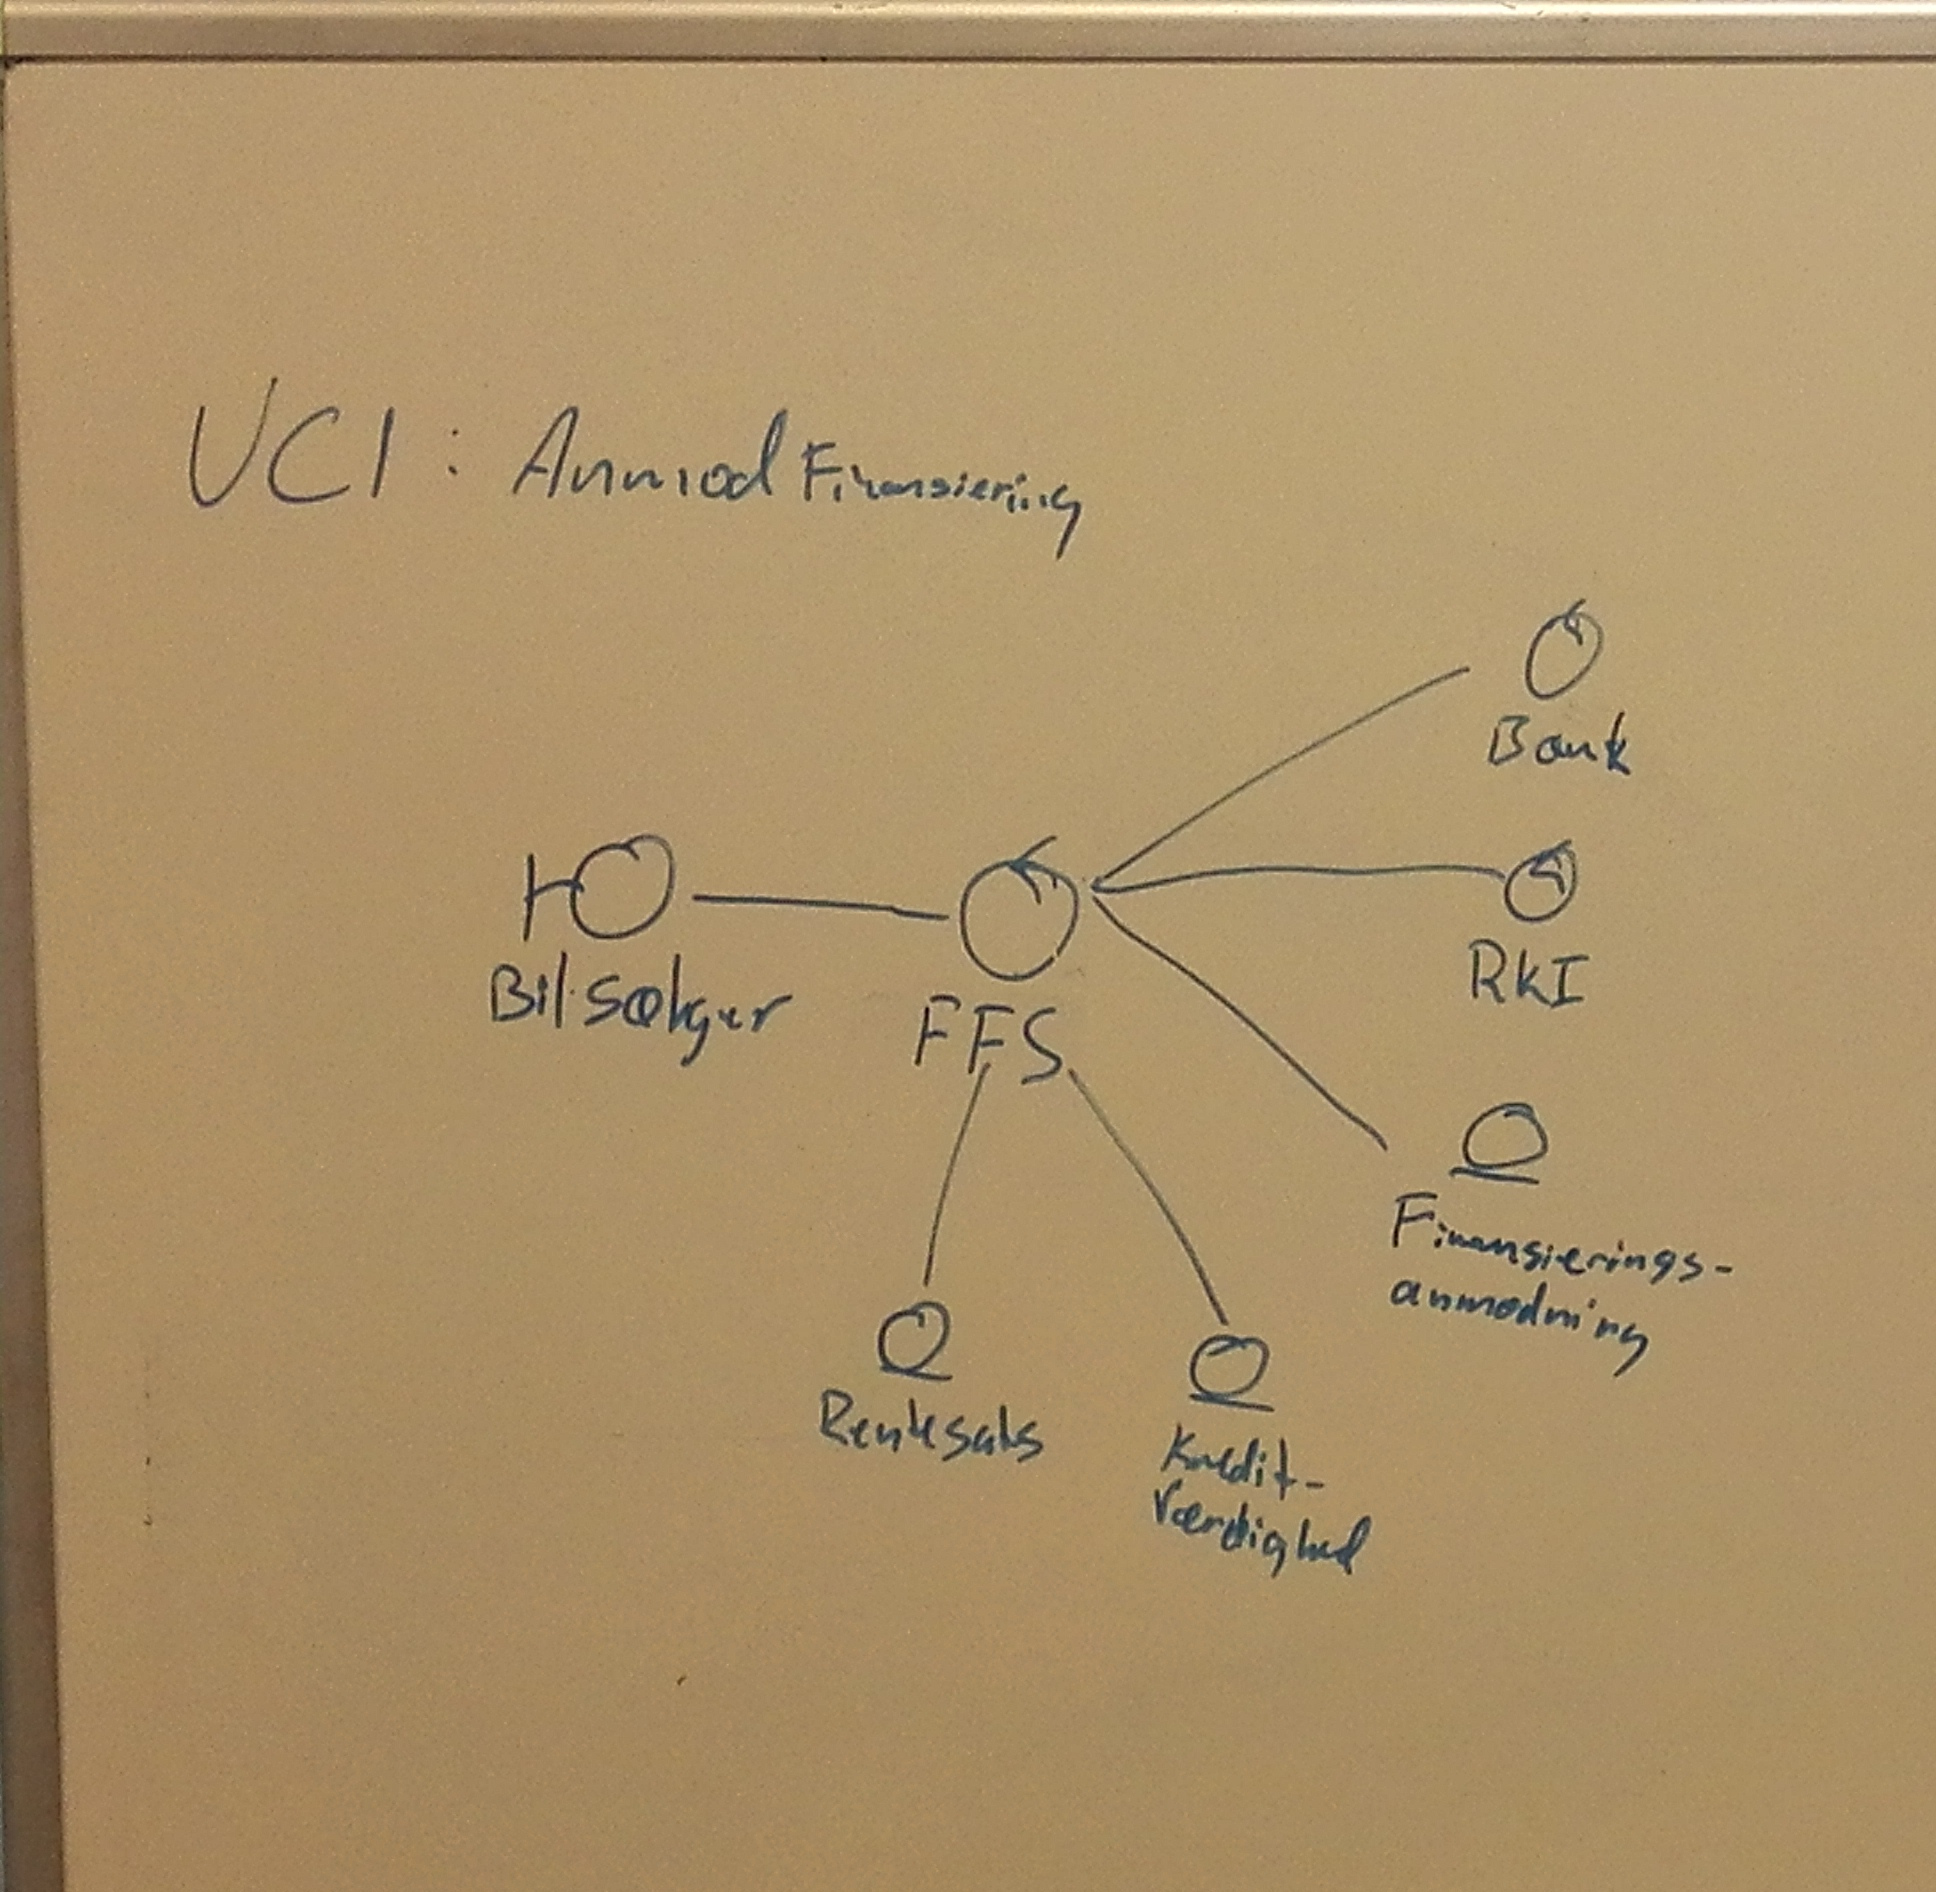 UC1: Anmod Finansiering
Bank
Bilsælger
FFS
RKI
Finansierings-
anmodning
Rentesats
Kredit-
værdighed